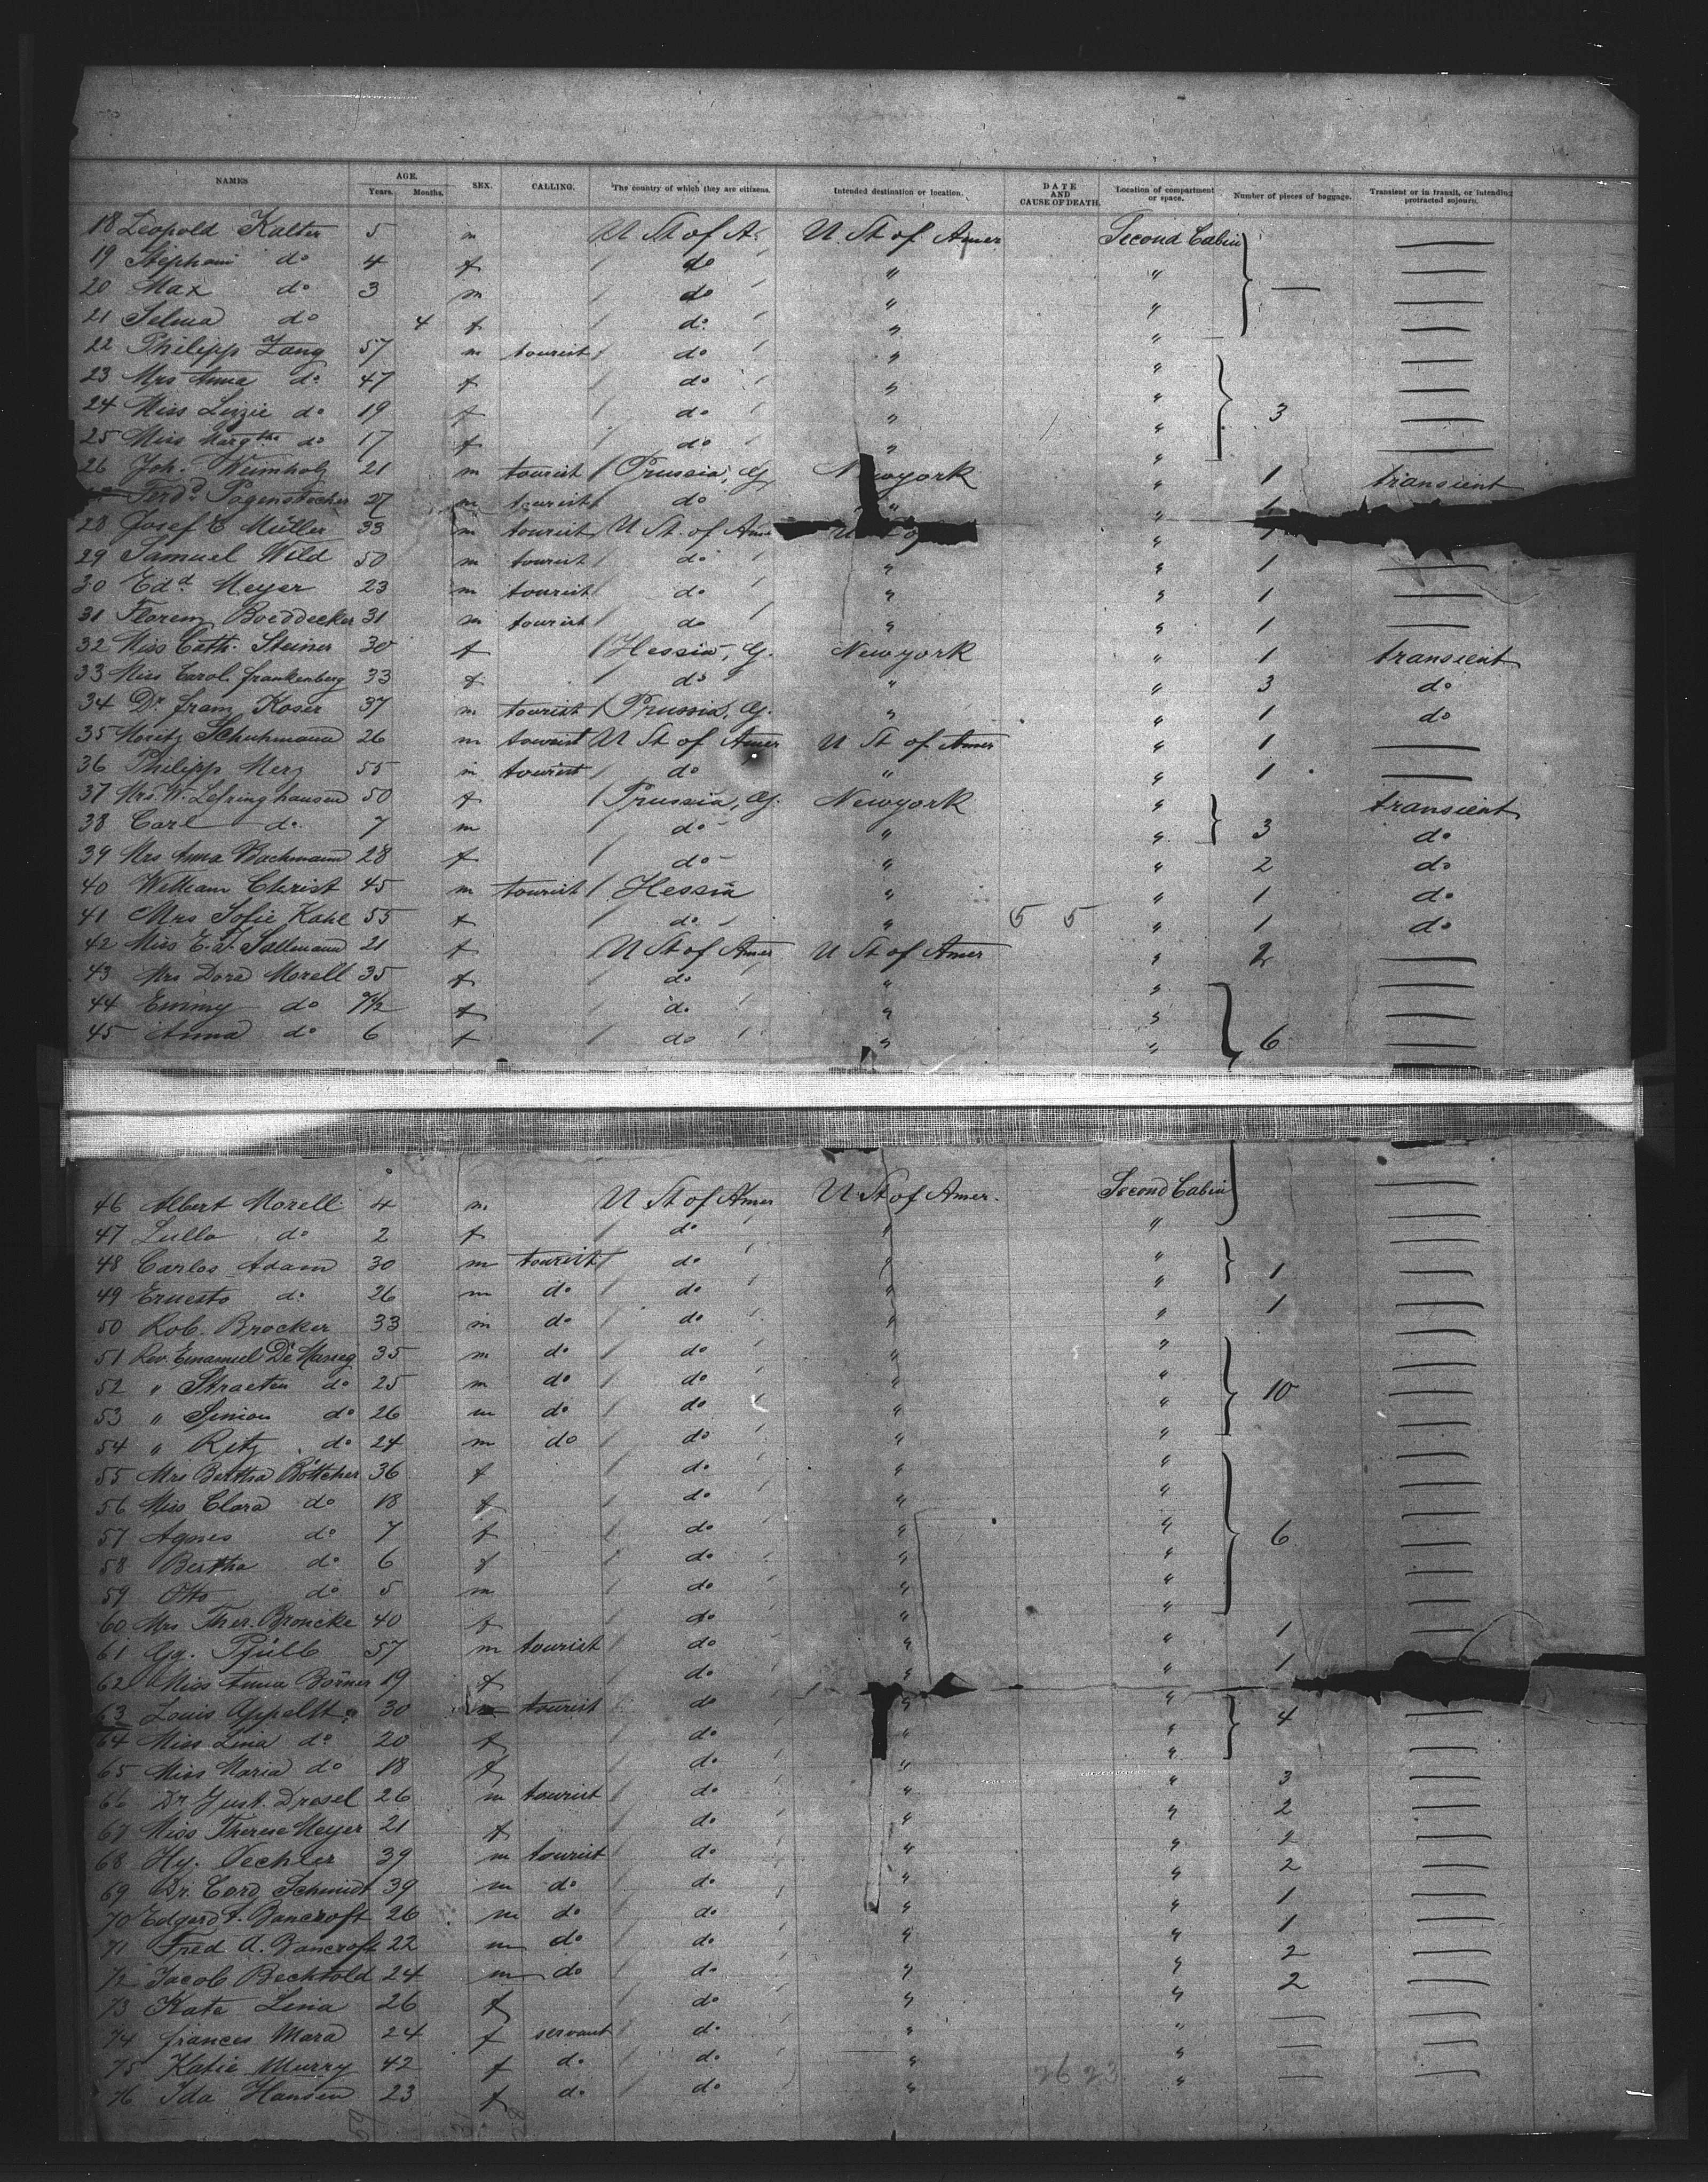 NAMES AGE. Years. Months. SEX. CALLING. The country of which they are citizens. Intended destination or location. DATE AND CAUSE OF DEATH. Location of compartment or space. Number of pieces of baggage. Transient or in transit, or intending protracted sojourn.
18 Leopold Kalter 5 m U St of A. U. St of Amer Second Cabin —
19 Stephani do 4 f do " " —
20 Max do 3 m do " " — —
21 Selma do 4 f do " " —
22 Philipp Zang 57 m tourist do " " —
23 Mrs Anna do 47 f do " " —
24 Miss Lizzie do 19 f do " " 3 —
25 Miss Margthe do 17 f do " " —
26 Joh. Weimholz 21 m tourist Prussia, G. Newyork " 1 transient
Ferdd. Pagenstecher 27 m tourist do " " 1
28 Josef C Müller 33 m tourist U St. of Amer "
29 Samuel Wild 50 m tourist do " " 1 —
30 Edd Meyer 23 m tourist do " " 1 —
31 Florenz Boeddecker 31 m tourist do " " 1 —
32 Miss Cath. Steiner 30 f Hessia, G. Newyork " 1 transient
33 Miss Carol. Frankenberg 33 f do " " 3 do
34 Dr Franz Koser 37 m tourist Prussia, G. " " 1 do
35 Moritz Schuhmann 26 m tourist U St of Amer U St of Amer " 1 —
36 Philipp Merz 55 m tourist do " " 1 —
37 Mrs. W. Lefringhausen 50 f Prussia, G. Newyork " transient
38 Carl do 7 m do " " 3 do
39 Mrs Anna Bachmann 28 f do " " 2 do
40 William Christ 45 m tourist Hessia " " 1 do
41 Mrs Sofie Kahl 55 f do " 5 5 " 1 do
42 Miss E. F. Sallmann 21 f U St of Amer U St of Amer " 2 —
43 Mrs Dora Morell 35 f do " " —
44 Emmy do 7½ f do " " —
45 Anna do 6 f do " " 6 —
46 Albert Morell 4 m U St of Amer U St of Amer. Second Cabin —
47 Lulla do 2 f do " " —
48 Carlos Adam 30 m tourist do " " —
49 Ernesto do 26 m do do " " 1 —
50 Rob. Brocker 33 m do do " " 1 —
51 Rev. Emanuel De 35 m do do " " —
52 " Straeten do 25 m do do " " —
53 " Simion do 26 m do do " " 10 —
54 " Ritz do 24 m do do " " —
55 Mrs Bertha Böttcher 36 f do " " —
56 Miss Clara do 18 f do " " —
57 Agnes do 7 f do " " —
58 Bertha do 6 f do " " 6 —
59 Otto do 5 m do " " —
60 Mrs Ther. Broncke 40 f do " " —
61 Gg. 57 m tourist do " " 1 —
62 Miss Anna Börner 19 f do " " 1
63 Louis Appellt 30 m tourist do " "
64 Miss Lina do 20 f do " " 4 —
65 Miss Maria do 18 f do " " —
66 Dr Gust. Dresel 26 m tourist do " " 3 —
67 Miss Therese Meyer 21 f do " " 2 —
68 Hy. Oechler 39 m tourist do " " 2 —
69 Dr. Cord Schmidt 39 m do do " " 2 —
70 Edgerd A. Bancroft 26 m do do " " 1 —
71 Fred A. Bancroft 22 m do do " " 1 —
72 Jacob Bechtold 24 m do do " " 2 —
73 Kate Lina 26 f do " " 2 —
74 Frances Mara 24 f servant do " " — —
75 Katie Murry 42 f do do " " — —
76 Ida Hansen 23 f do do " 26 23 " — —